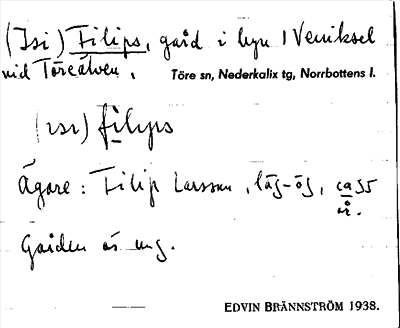 (Isi) Filips, gård i byn
vid Töreälven. Töre sn, Nederkalix tg, Norrbottens l.
filips
Ägare: Filip Larsson, ca 55
år.
Gården är ung.
EDVIN BRÄNNSTRÖM 1938.